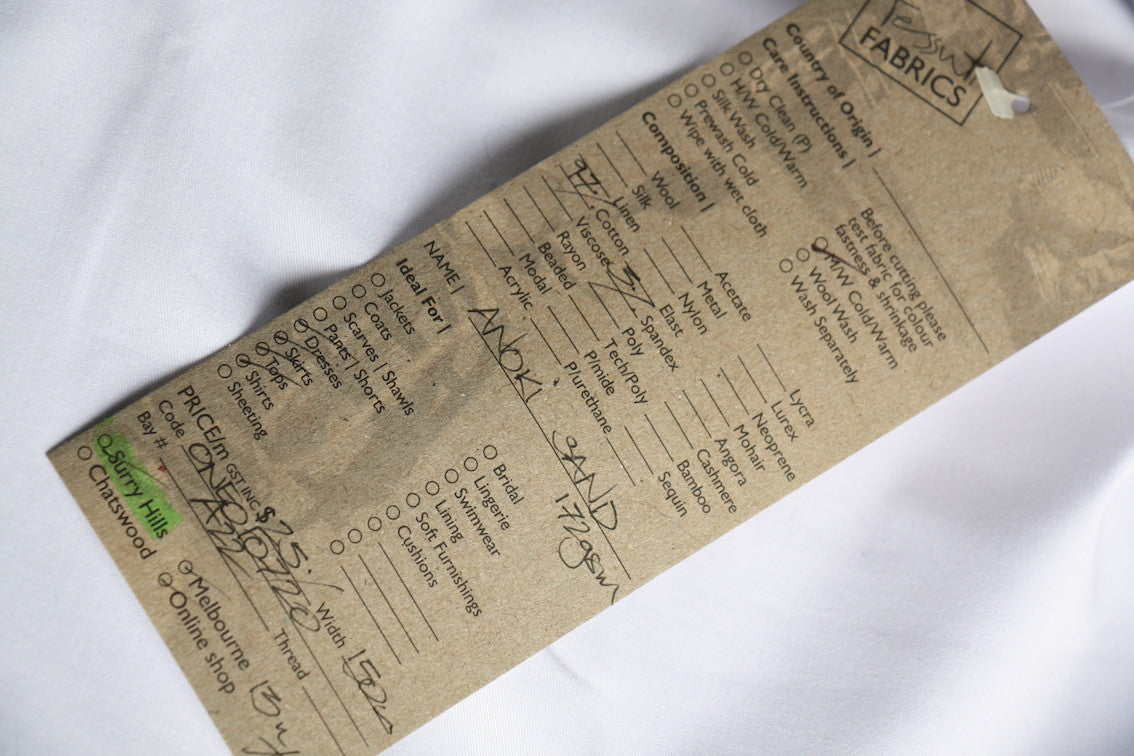 Tessuti
FABRICS
Country of Origin |
Care Instructions |
Dry Clean (P)
H/W Cold/Warm
Silk Wash
Prewash Cold
Wipe with wet cloth
Before cutting please
test fabric for colour
fastness & shrinkage
H/W Cold/Warm
Wool Wash
Wash Separately
Composition |
Wool
Silk
Linen
97% Cotton
Viscose
Rayon
Beaded
Modal
Acrylic
Acetate
Metal
Nylon
Elast
3% Spandex
Poly
Tech/Poly
P/mide
P/urethane
Lycra
Lurex
Neoprene
Mohair
Angora
Cashmere
Bamboo
Sequin
NAME | ANOKI SAND
172gsm
Ideal For |
Jackets
Coats
Scarves | Shawls
Pants | Shorts
Dresses
Skirts
Tops
Shirts
Sheeting
Bridal
Lingerie
Swimwear
Lining
Soft Furnishings
Cushions
PRICE/m GST INC $25 Width
Code
Bay # A22 Thread
Surry Hills
Chatswood
Melbourne
Online shop